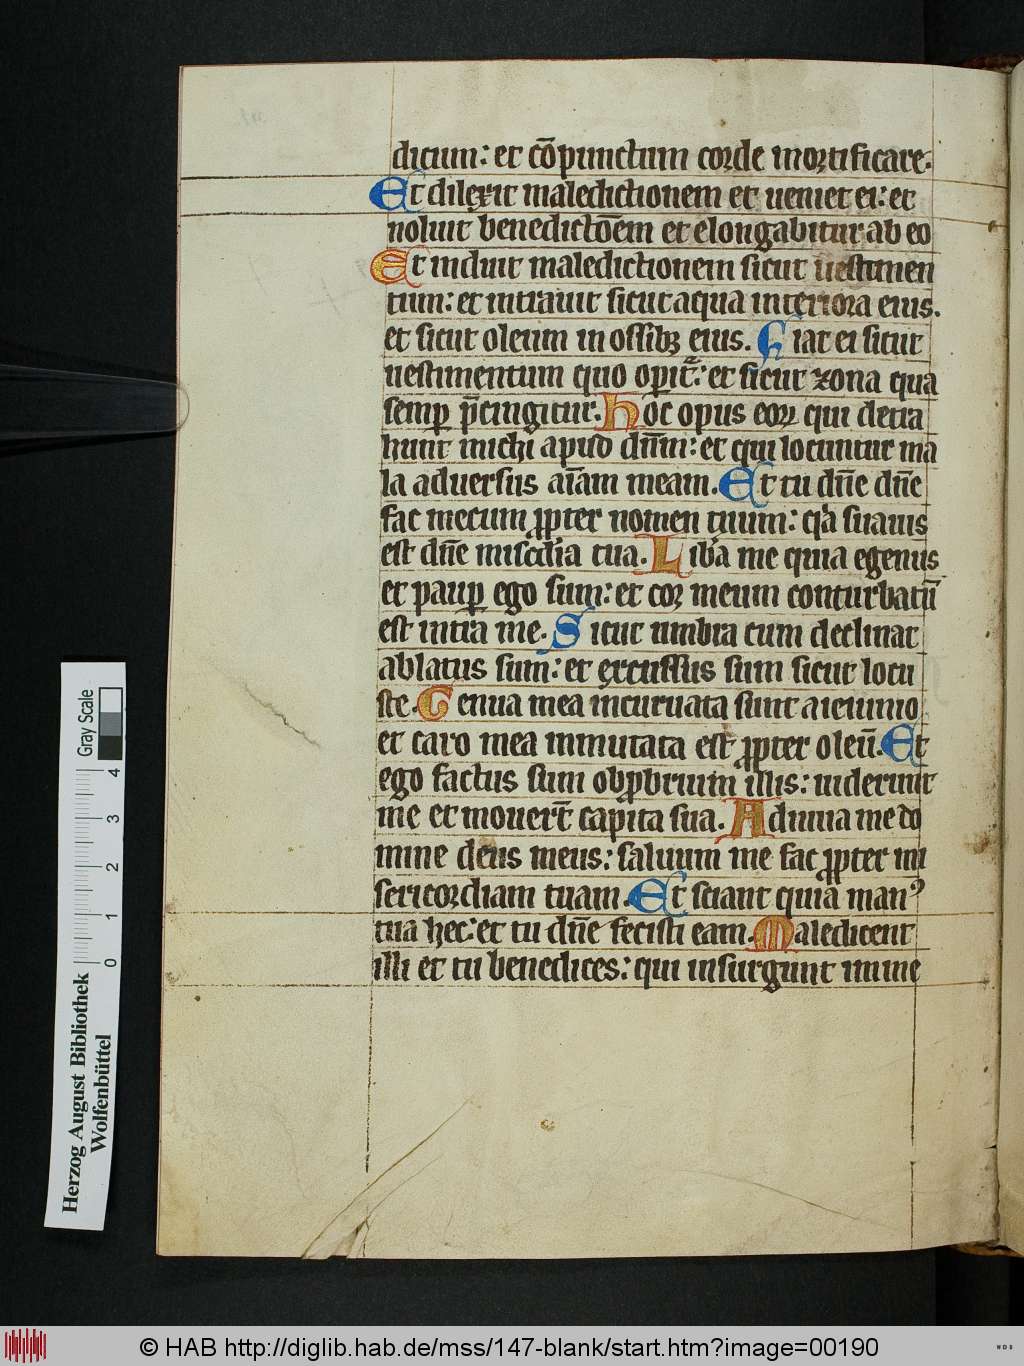 dicum: et cōpunctum corde mortificare.
Et dilexit maledictionem et ueniet ei: et
noluit benedictōem et elongabitur ab eo
Et induit maledictionem sicut uestimen
tum: et intrauit sicut aqua interiora eius.
et sicut oleum in ossibꝫ eius. Fiat ei sicut
uestimentum quo operit᷑: et sicut zona qua
semꝑ p̄cingitur. Hoc opus eoꝝ qui detra
hunt michi apud dn̄m: et qui locuntur ma
la aduersus aīam meam. Et tu dn̄e dn̄e
fac mecum ꝓpter nomen tuum: qꝛa suauis
est dn̄e misc̄dia tua. Lib̄a me quia egenus
et pauꝑ ego sum: et cor meum conturbatū
est intra me. Sicut umbra cum declinat
ablatus sum: et excussus sum sicut locu
ste. Genua mea incuruata sunt a ieiunio
et caro mea inmutata est ꝓpter oleū. Et
ego factus sum obꝓbrium illis: uiderunt
me et mouerūt capita sua. Adiuua me do
mine deus meus: saluum me fac ꝓpter mi
sericordiam tuam. Et sciant quia manꝰ
tua hec: et tu dn̄e fecisti eam. Maledicent
illi et tu benedices: qui insurgunt in me
Herzog August Bibliothek
Wolfenbüttel
0 1 2 3 4
Gray Scale
© HAB http://diglib.hab.de/mss/147-blank/start.htm?image=00190